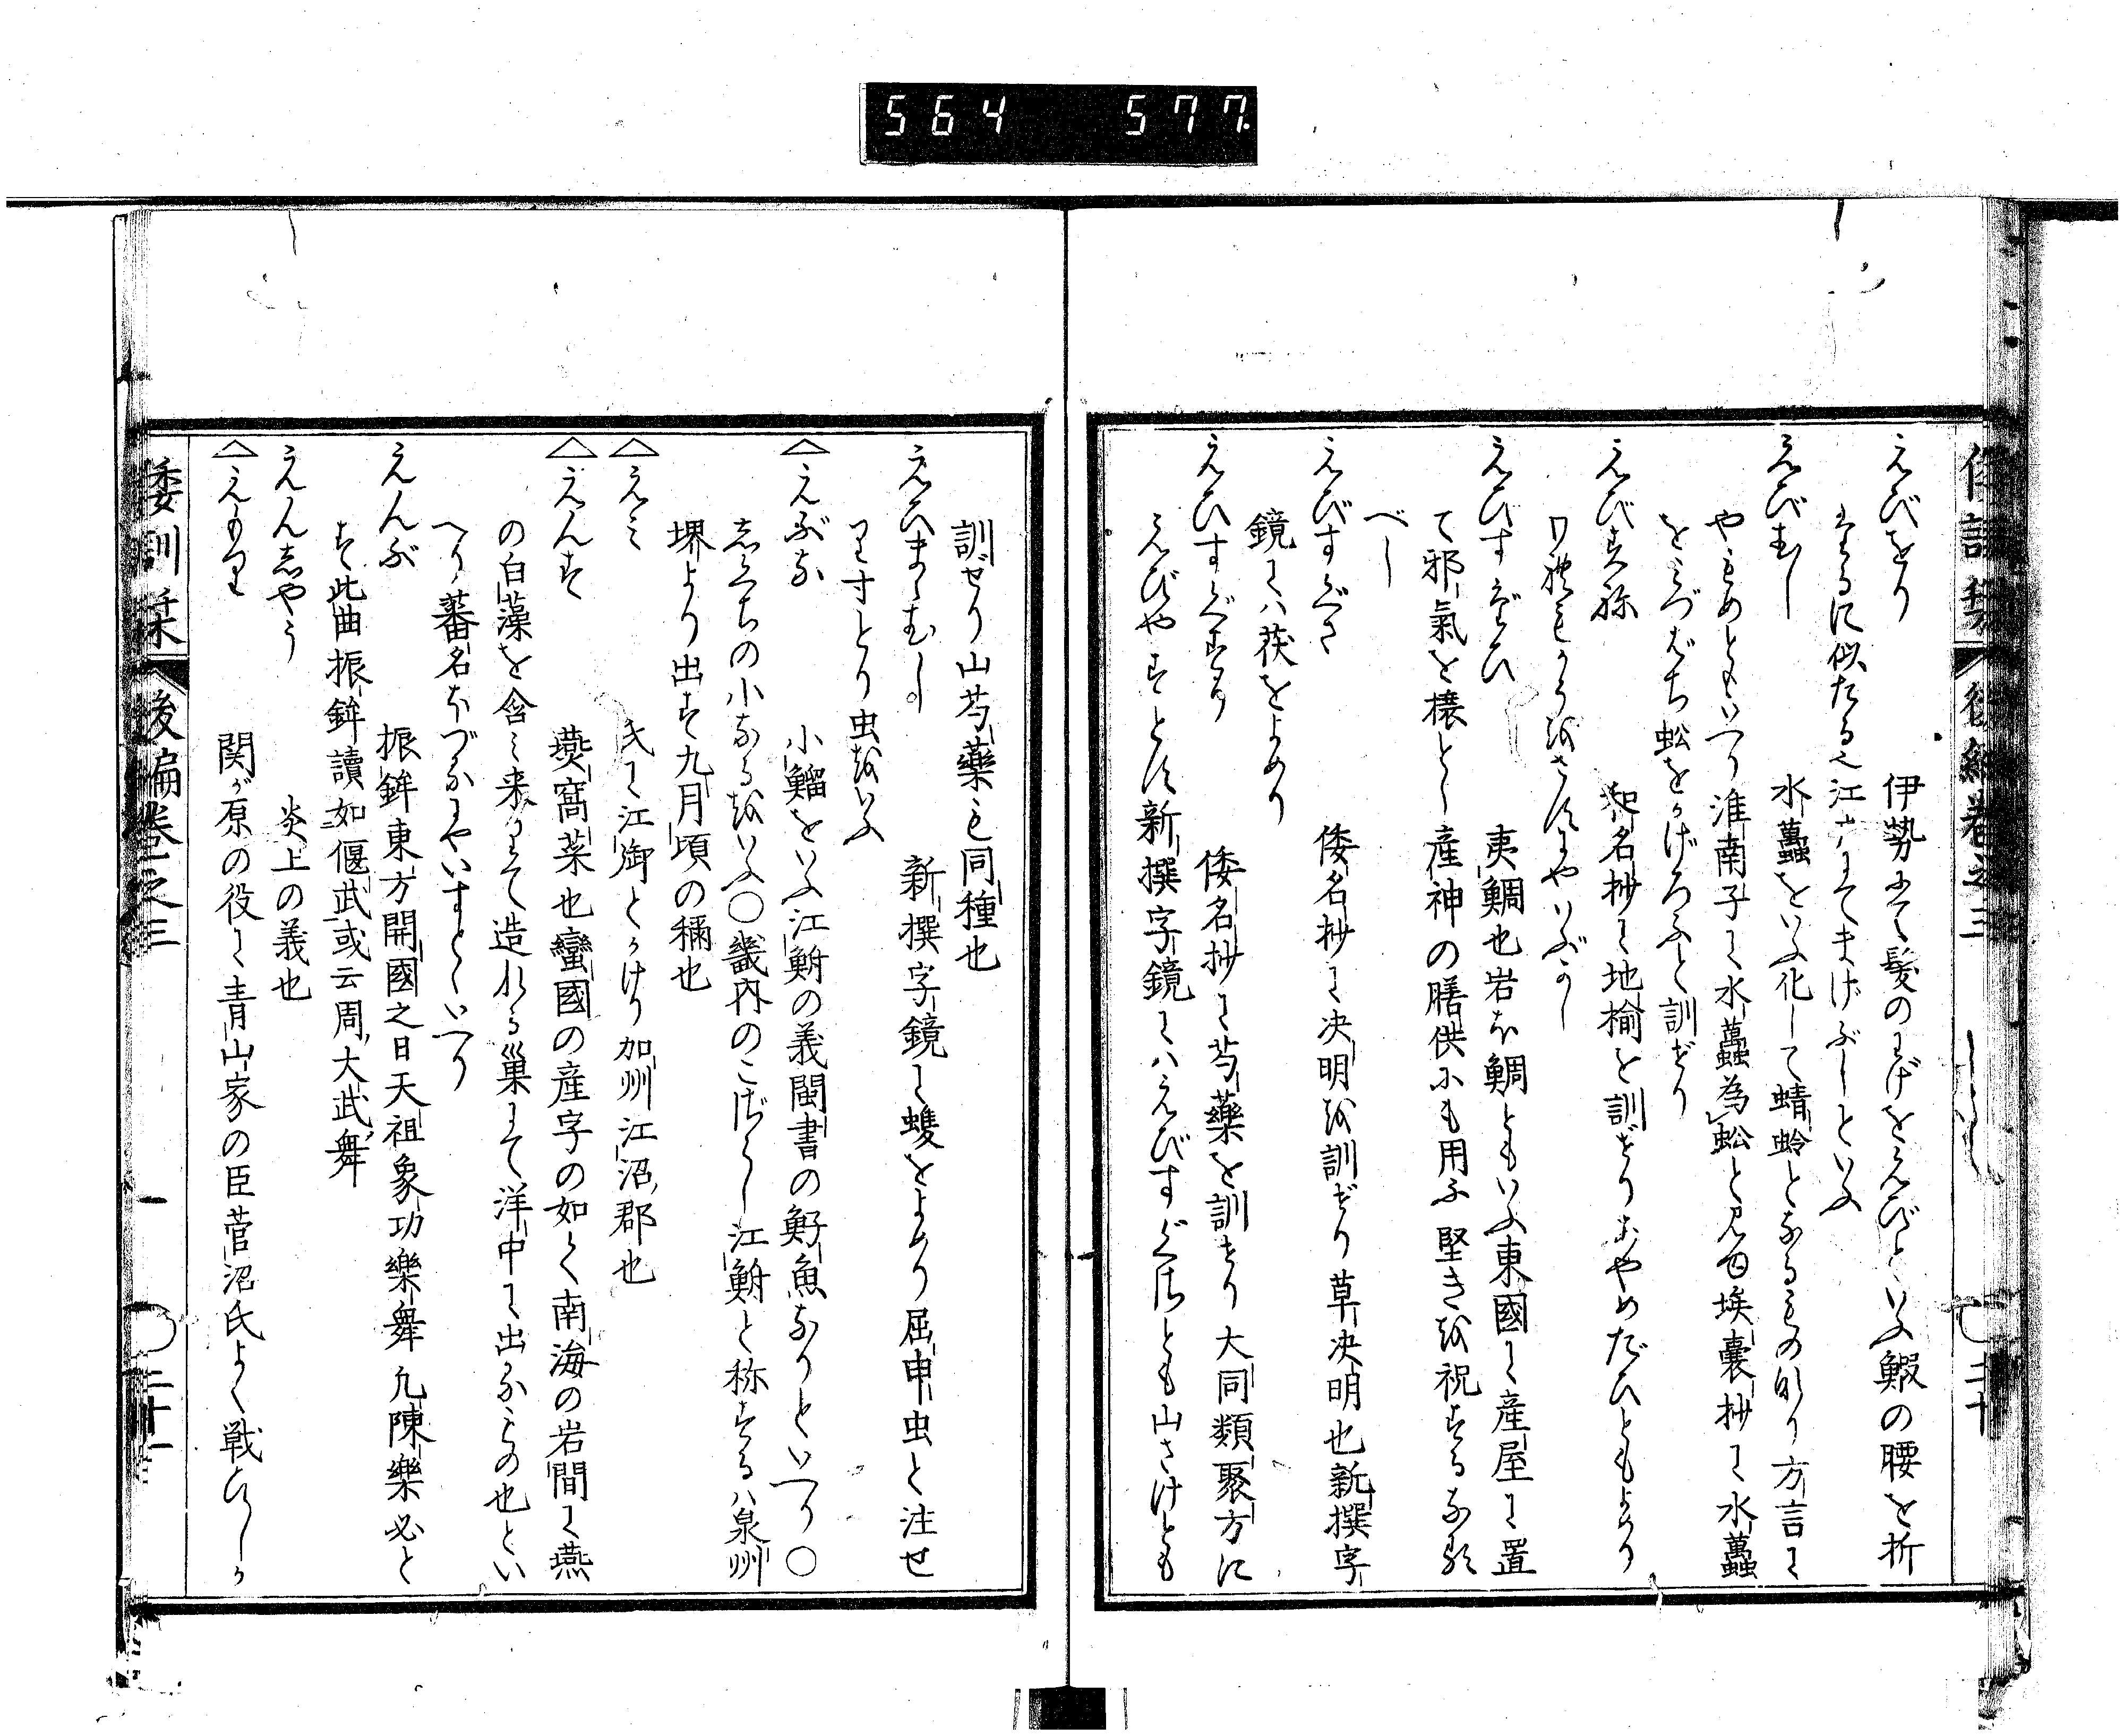 564 577
倭訓栞 後編卷之三 二十
えびをり 伊勢にて髪のまげをえびといふ鰕の腰を折
たるに似たる也江戸にてまげぶしといふ
えびむし 水蠆をいふ化して蜻蛉となるもの也方言に
やまめともいへり淮南子に水蠆為蚣と見ゆ埃嚢抄に水蠆
をみづばち蚣をかげろふと訓ぜり
えびすね 和名抄に地楡を訓ぜりあやめだひともよめり
えひすだひ 夷鯛也岩ほ鯛ともいふ東國に産屋に置
て邪氣を禳とし産神の膳供にも用ふ堅きを祝するなる
べし
えびすぐさ 倭名抄に决明を訓ぜり草决明也新撰字
鏡には茯をよめり
えひすぐすり 倭名抄に芍藥を訓せり大同類聚方に
えびやすとす新撰字鏡にはえびすぐさとも山さけとも
訓ぜり山芍藥も同種也
えひまむし 新撰字鏡に蠖をよめり屈申虫と注せ
り寸とり虫をいふ
△えぶな 小鯔をいふ江鮒の義閩書の魣魚なりといへり○
志くちの小なるをいふ○畿内のこぼらし江鮒と称するは泉州
堺より出す九月頃の稱也
△えみ 氏に江御とかけり加州江沼郡也
△えんす 燕窩菜也蠻國の産字の如く南海の岩間に燕
の白藻を含み来りて造れる巣にて洋中に出るもの也とい
へり蕃名なづるにやいすとといへり
えんぶ 振鉾東方開國之日天祖象功樂舞凡陳樂必と
す此曲振鉾讀如偃武或云周大武舞
えんしやう 炎上の義也
△えもり 関が原の役に青山家の臣菅沼氏よく戦ひしか
倭訓栞 後編卷之三 二十一